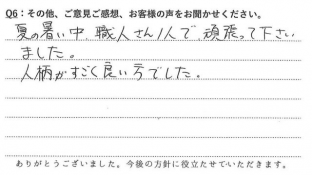 Q6：その他、ご意見ご感想、お客様の声をお聞かせください。
夏の暑い中、職人さん1人で、頑張って下さい
ました。
人柄がすごく良い方でした。
ありがとうございました。今後の方針に役立たせていただきます。